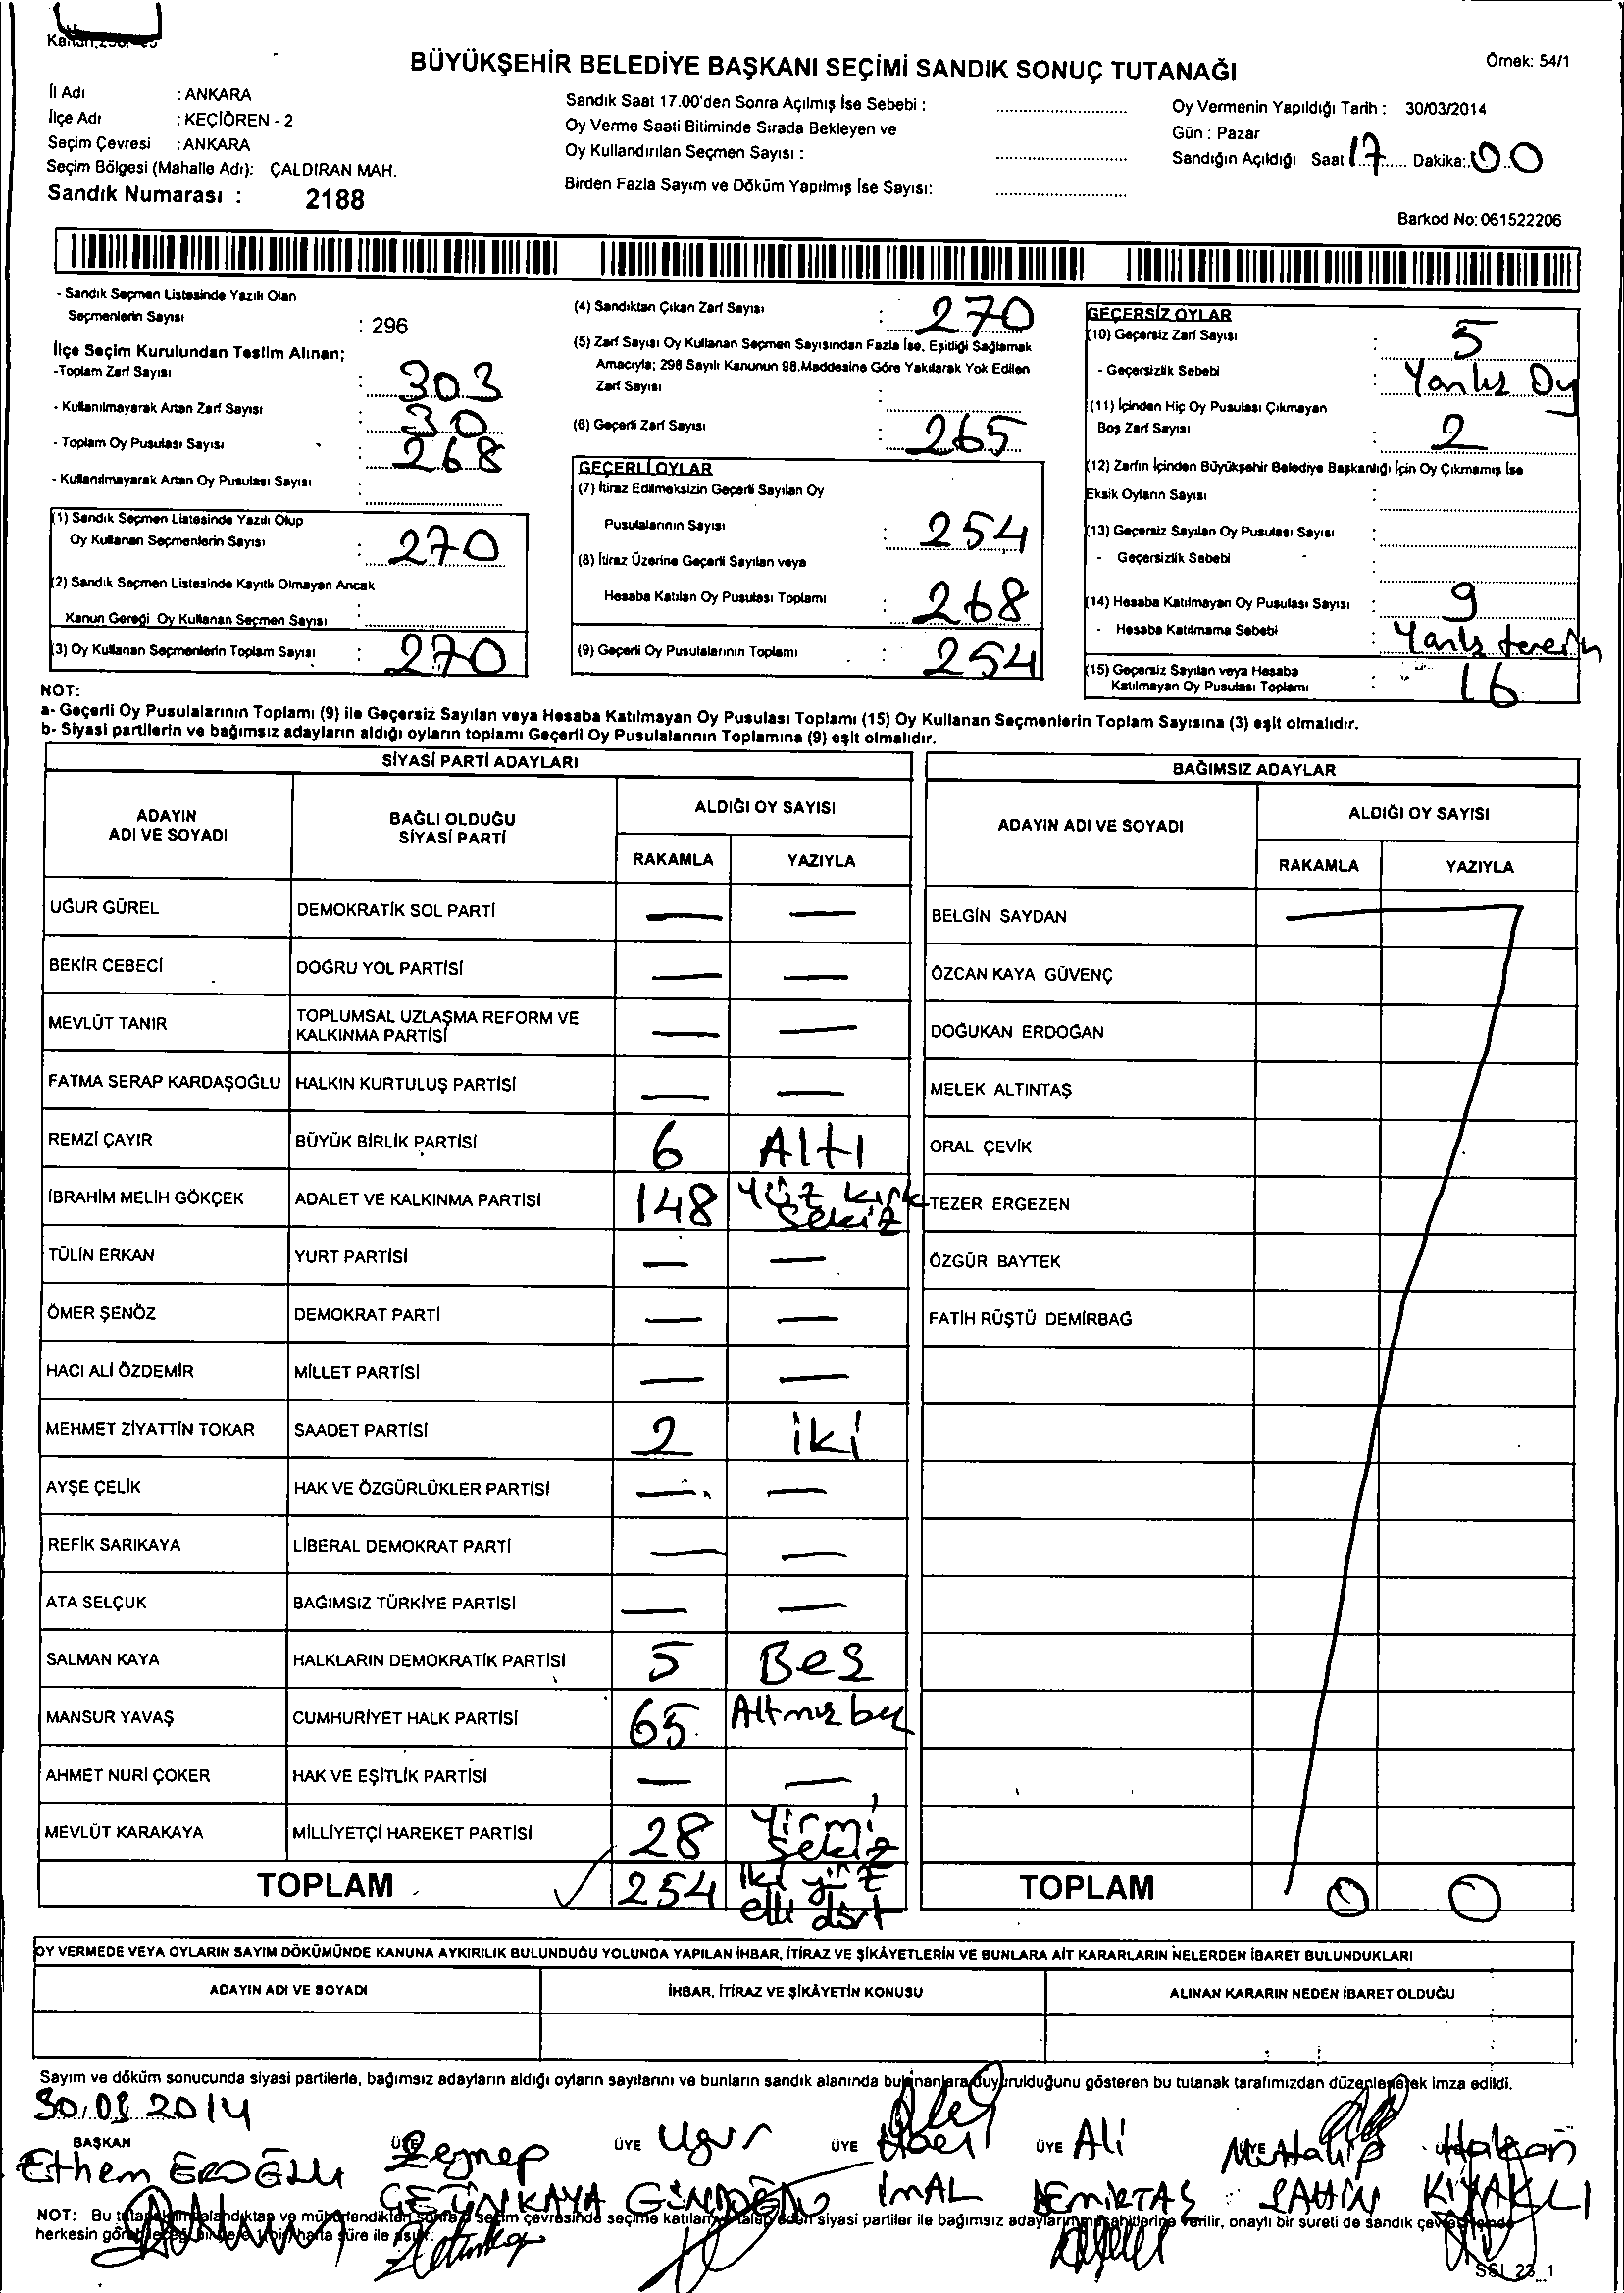 BÜYÜKŞEHİR BELEDİYE BAŞKANI SEÇİMİ SANDIK SONUÇ TUTANAĞI
Örnek: 54/1
İl Adı : ANKARA
İlçe Adı : KEÇİÖREN - 2
Seçim Çevresi : ANKARA
Seçim Bölgesi (Mahalle Adı): ÇALDIRAN MAH.
Sandık Numarası : 2188
Sandık Saat 17.00'den Sonra Açılmış İse Sebebi :
Oy Verme Saati Bitiminde Sırada Bekleyen ve
Oy Kullandırılan Seçmen Sayısı :
Birden Fazla Sayım ve Döküm Yapılmış İse Sayısı:
Oy Vermenin Yapıldığı Tarih : 30/03/2014
Gün : Pazar
Sandığın Açıldığı Saat 17 Dakika: 00
Barkod No: 061522206
- Sandık Seçmen Listesinde Yazılı Olan
Seçmenlerin Sayısı : 296
İlçe Seçim Kurulundan Teslim Alınan;
-Toplam Zarf Sayısı : 303
- Kullanılmayarak Artan Zarf Sayısı : 30
- Toplam Oy Pusulası Sayısı : 268
- Kullanılmayarak Artan Oy Pusulası Sayısı :
(1) Sandık Seçmen Listesinde Yazılı Olup
Oy Kullanan Seçmenlerin Sayısı : 270
(2) Sandık Seçmen Listesinde Kayıtlı Olmayan Ancak
Kanun Gereği Oy Kullanan Seçmen Sayısı :
(3) Oy Kullanan Seçmenlerin Toplam Sayısı : 270
(4) Sandıktan Çıkan Zarf Sayısı : 270
(5) Zarf Sayısı Oy Kullanan Seçmen Sayısından Fazla İse, Eşitliği Sağlamak
Amacıyla; 298 Sayılı Kanunun 98.Maddesine Göre Yakılarak Yok Edilen
Zarf Sayısı :
(6) Geçerli Zarf Sayısı : 265
GEÇERLİ OYLAR
(7) İtiraz Edilmeksizin Geçerli Sayılan Oy
Pusulalarının Sayısı : 254
(8) İtiraz Üzerine Geçerli Sayılan veya
Hesaba Katılan Oy Pusulası Toplamı : 268
(9) Geçerli Oy Pusulalarının Toplamı : 254
GEÇERSİZ OYLAR
(10) Geçersiz Zarf Sayısı : 5
- Geçersizlik Sebebi : Yanlış Oy
(11) İçinden Hiç Oy Pusulası Çıkmayan
Boş Zarf Sayısı : 2
(12) Zarfın İçinden Büyükşehir Belediye Başkanlığı İçin Oy Çıkmamış İse
Eksik Oyların Sayısı :
(13) Geçersiz Sayılan Oy Pusulası Sayısı :
- Geçersizlik Sebebi :
(14) Hesaba Katılmayan Oy Pusulası Sayısı : 9
- Hesaba Katılmama Sebebi : Yanlış
(15) Geçersiz Sayılan veya Hesaba
Katılmayan Oy Pusulası Toplamı : 16
NOT:
a- Geçerli Oy Pusulalarının Toplamı (9) ile Geçersiz Sayılan veya Hesaba Katılmayan Oy Pusulası Toplamı (15) Oy Kullanan Seçmenlerin Toplam Sayısına (3) eşit olmalıdır.
b- Siyasi partilerin ve bağımsız adayların aldığı oyların toplamı Geçerli Oy Pusulalarının Toplamına (9) eşit olmalıdır.
SİYASİ PARTİ ADAYLARI
ADAYIN ADI VE SOYADI BAĞLI OLDUĞU SİYASİ PARTİ ALDIĞI OY SAYISI
RAKAMLA YAZIYLA
UĞUR GÜREL DEMOKRATİK SOL PARTİ — —
BEKİR CEBECİ DOĞRU YOL PARTİSİ — —
MEVLÜT TANIR TOPLUMSAL UZLAŞMA REFORM VE KALKINMA PARTİSİ — —
FATMA SERAP KARDAŞOĞLU HALKIN KURTULUŞ PARTİSİ — —
REMZİ ÇAYIR BÜYÜK BİRLİK PARTİSİ 6 Altı
İBRAHİM MELİH GÖKÇEK ADALET VE KALKINMA PARTİSİ 148 Yüz kırk sekiz
TÜLİN ERKAN YURT PARTİSİ — —
ÖMER ŞENÖZ DEMOKRAT PARTİ — —
HACI ALİ ÖZDEMİR MİLLET PARTİSİ — —
MEHMET ZİYATTİN TOKAR SAADET PARTİSİ 2 iki
AYŞE ÇELİK HAK VE ÖZGÜRLÜKLER PARTİSİ — —
REFİK SARIKAYA LİBERAL DEMOKRAT PARTİ — —
ATA SELÇUK BAĞIMSIZ TÜRKİYE PARTİSİ — —
SALMAN KAYA HALKLARIN DEMOKRATİK PARTİSİ 5 Beş
MANSUR YAVAŞ CUMHURİYET HALK PARTİSİ 65 Altmış beş
AHMET NURİ ÇOKER HAK VE EŞİTLİK PARTİSİ — —
MEVLÜT KARAKAYA MİLLİYETÇİ HAREKET PARTİSİ 28 Yirmi sekiz
TOPLAM 254 iki yüz elli dört
BAĞIMSIZ ADAYLAR
ADAYIN ADI VE SOYADI ALDIĞI OY SAYISI
RAKAMLA YAZIYLA
BELGİN SAYDAN
ÖZCAN KAYA GÜVENÇ
DOĞUKAN ERDOĞAN
MELEK ALTINTAŞ
ORAL ÇEVİK
TEZER ERGEZEN
ÖZGÜR BAYTEK
FATİH RÜŞTÜ DEMİRBAĞ
TOPLAM 0 0
OY VERMEDE VEYA OYLARIN SAYIM DÖKÜMÜNDE KANUNA AYKIRILIK BULUNDUĞU YOLUNDA YAPILAN İHBAR, İTİRAZ VE ŞİKÂYETLERİN VE BUNLARA AİT KARARLARIN NELERDEN İBARET BULUNDUKLARI
ADAYIN ADI VE SOYADI İHBAR, İTİRAZ VE ŞİKÂYETİN KONUSU ALINAN KARARIN NEDEN İBARET OLDUĞU
Sayım ve döküm sonucunda siyasi partilerle, bağımsız adayların aldığı oyların sayılarını ve bunların sandık alanında bulunanlara duyurulduğunu gösteren bu tutanak tarafımızdan düzenlenerek imza edildi.
30.03.2014
BAŞKAN ÜYE ÜYE ÜYE ÜYE ÜYE ÜYE
Ethem EROĞLU
Zeynep ÇETİNKAYA
Uğur
İMAL
Ali DEMİRTAŞ
ŞAHİN
NOT: Bu seçim çevresinde seçime katılan siyasi partiler ile bağımsız adayların verilir, onaylı bir sureti de sandık
herkesin bir hafta süre ile asılır.